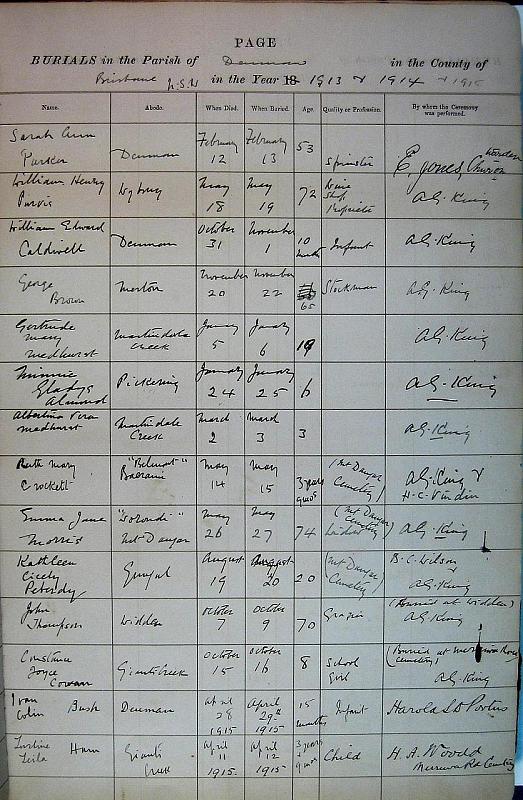 PAGE
BURIALS in the Parish of Denman in the County of
Brisbane N.S.W in the Year 18 1913 & 1914 & 1915
Name. Abode. When Died. When Buried. Age. Quality or Profession. By whom the Ceremony was performed.
Sarah Ann February February 53 Warden
Parker Denman 12 13 Spinster E. Jones Church
William Henry Wybong May May 72 Wine A.G. King
Purvis 18 19 Shop
Proprietor
William Edward October November 10
Caldwell Denman 31 1 months Infant A.G. King
George Merton November November Stockman A.G. King
Brown 20 22 65
Gertrude Martindale January January 19 A.G. King
Mary Creek 5 6
Medhurst
Minnie Pickering January January 6 A.G. King
Gladys 24 25
Almond
Albertina Vera Martindale March March 3 A.G. King
Medhurst Creek 2 3
Ruth Mary "Belmont" May May 3 years (Mt Dangar A.G. King &
Crockett Baerami 14 15 9 mos Cemetery) H.C. Vindin
Emma Jane May May 74 (Mt Dangar A.G. King
Morris Mt Dangar 26 27 Cemetery)
Kathleen Gungal August August 20 (Mt Dangar B.C. Wilson
Cicely 19 20 Cemetery) A.G. King
John Widden October October 70 Grazier (Buried at Widden)
Thompson 7 9 A.G. King
Constance Giants Creek October October 8 School (Buried at
Joyce 15 16 girl Cemetery)
Cowan A.G. King
Ivan Bush Denman April April 15 Infant Harold
Colin 28 29th months
1915 1915
Leila Ham Giants April April 3 years Child H.A. Woodd
Creek 11 12 9 mos Cemetery
1915. 1915